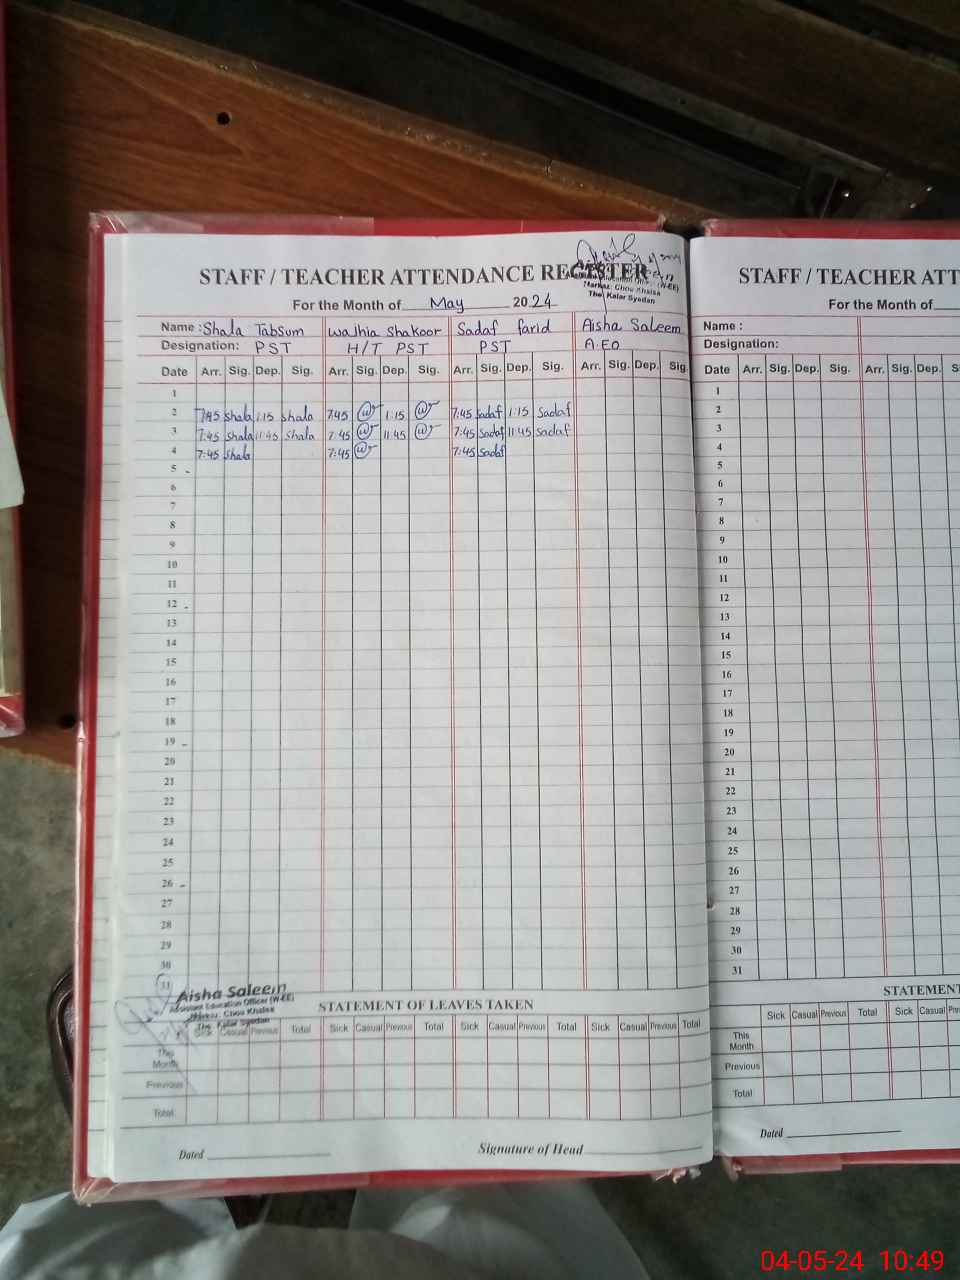 STAFF / TEACHER ATTENDANCE REGISTER
For the Month of May 2024
Name : Shala Tabsum wajhia shakoor Sadaf farid Aisha Saleem
Designation: PST H/T PST PST A.EO
Date Arr. Sig. Dep. Sig. Arr. Sig. Dep. Sig. Arr. Sig. Dep. Sig. Arr. Sig. Dep. Sig.
1
2 7:45 shala 1:15 shala 7:45 1:15 7:45 sadaf 1:15 sadaf
3 7:45 shala 11:45 shala 7:45 11:45 7:45 sadaf 11:45 sadaf
4 7:45 shala 7:45 7:45 sadaf
5 -
6
7
8
9
10
11
12 -
13
14
15
16
17
18
19 -
20
21
22
23
24
25
26 -
27
28
29
30
31
Aisha Saleem
Assistant Education Officer (W-EE)
Markaz: Choa Khalsa
The. Kalar Syedan
STATEMENT OF LEAVES TAKEN
Sick Casual Previous Total Sick Casual Previous Total Sick Casual Previous Total Sick Casual Previous Total
This Month
Previous
Total
Dated Signature of Head
(W-EE)
Markaz: Choa Khalsa
The. Kalar Syedan
STAFF / TEACHER ATT
For the Month of
Name :
Designation:
Date Arr. Sig. Dep. Sig. Arr. Sig. Dep. S
1
2
3
4
5
6
7
8
9
10
11
12
13
14
15
16
17
18
19
20
21
22
23
24
25
26
27
28
29
30
31
STATEMENT
Sick Casual Previous Total Sick Casual Pre
This Month
Previous
Total
Dated
04-05-24 10:49